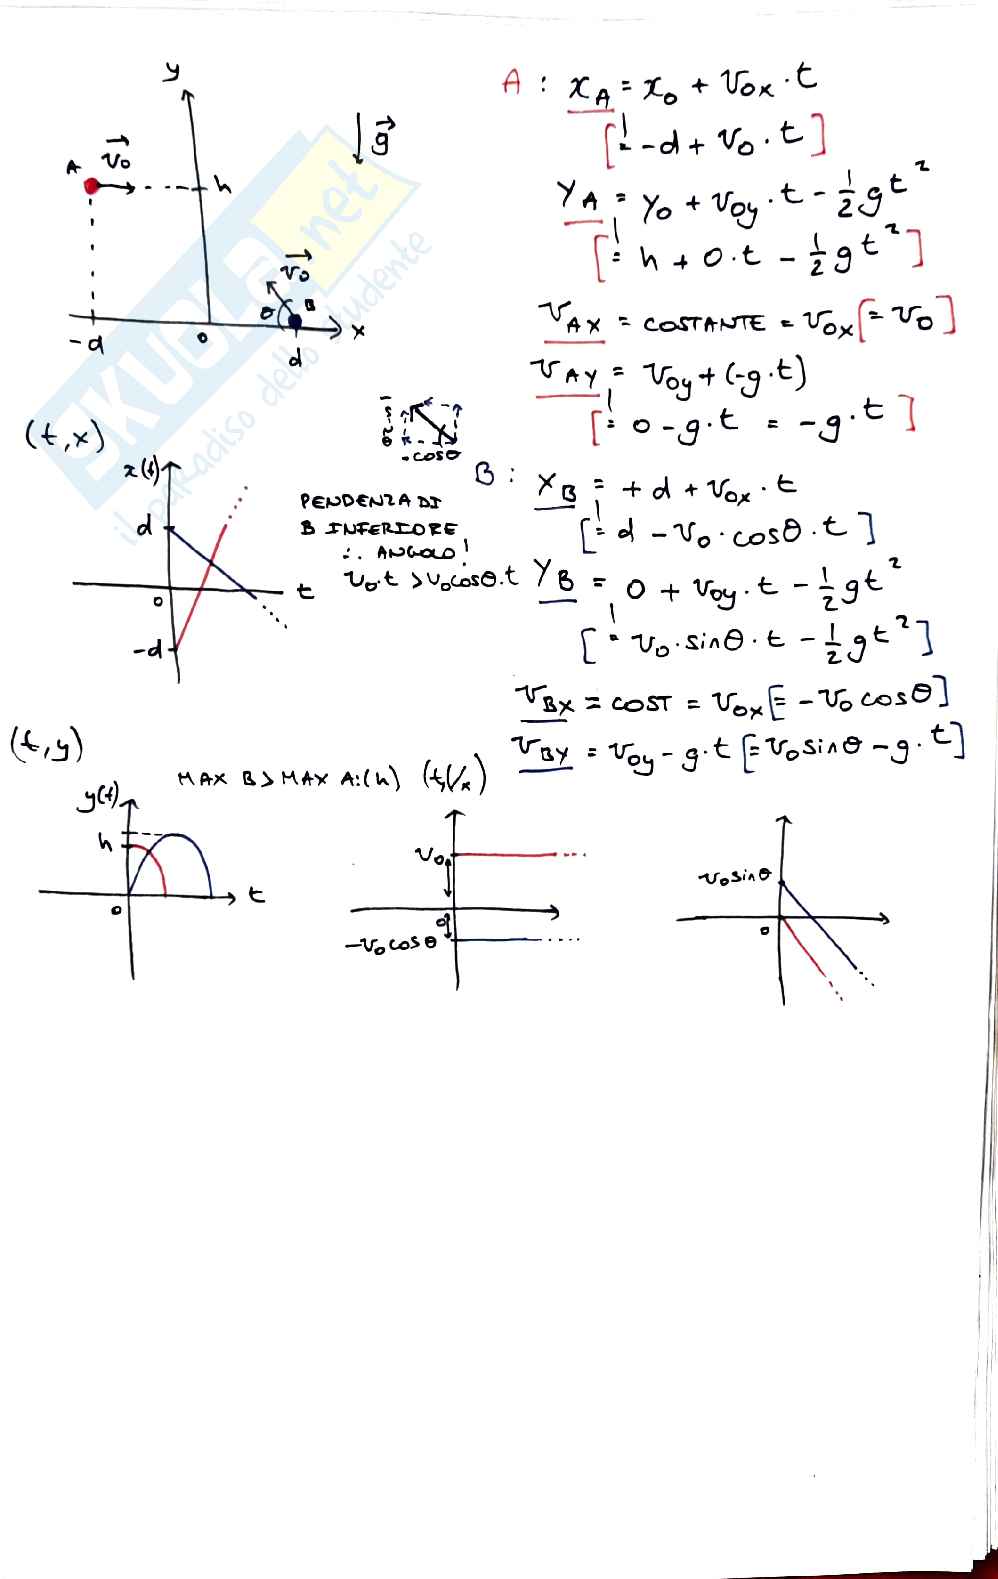 y
A
v₀
h
g
v₀
θ
B
-d
0
d
x
SKUOLA.net
il paradiso dello studente
A : x_A = x₀ + v₀x · t
[= -d + v₀ · t]
y_A = y₀ + v₀y · t - ½gt²
[= h + 0·t - ½gt²]
v_AX = COSTANTE = v₀x [= v₀]
v_AY = v₀y + (-g·t)
[= 0 - g·t = -g·t]
-cosθ
B : x_B = +d + v₀x · t
[= d - v₀ · cosθ · t]
y_B = 0 + v₀y · t - ½gt²
[= v₀ · sinθ · t - ½gt²]
v_BX = COST = v₀x [= -v₀ cosθ]
v_BY = v₀y - g·t [= v₀ sinθ - g·t]
(t,x)
x(t)
d
0
t
-d
PENDENZA DI
B INFERIORE
∴ ANGOLO!
v₀·t > v₀cosθ·t
(t,y)
MAX B > MAX A:(h)
y(t)
h
0
t
(t,Vx)
v₀
0
-v₀cosθ
v₀sinθ
0